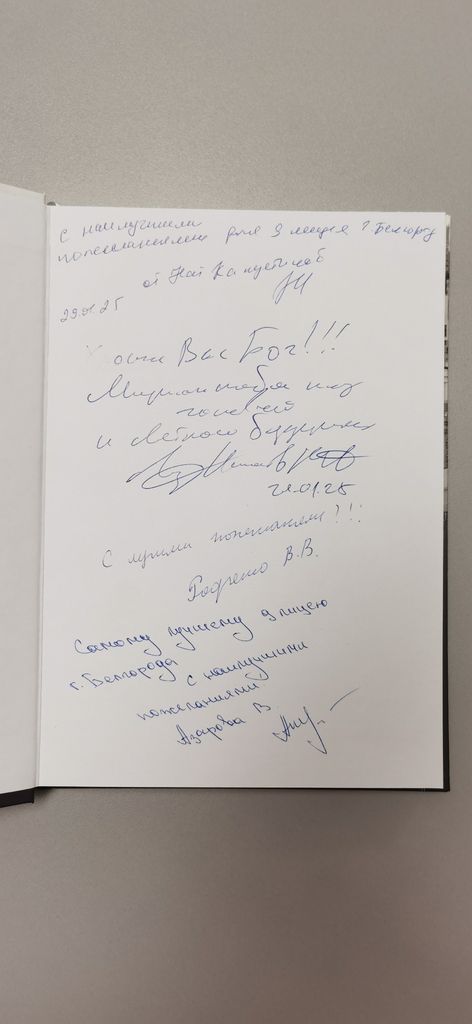 С наилучшими
пожеланиями для 9 лицея г. Белгород
от
29.01.25
Вас Бог!!!
Мирного неба над
головой
и светлого будущего
29.01.25
С лучшими пожеланиями!!!
В.В.
Самому лучшему 9 лицею
г. Белгорода
с наилучшими
пожеланиями
Азарова В.